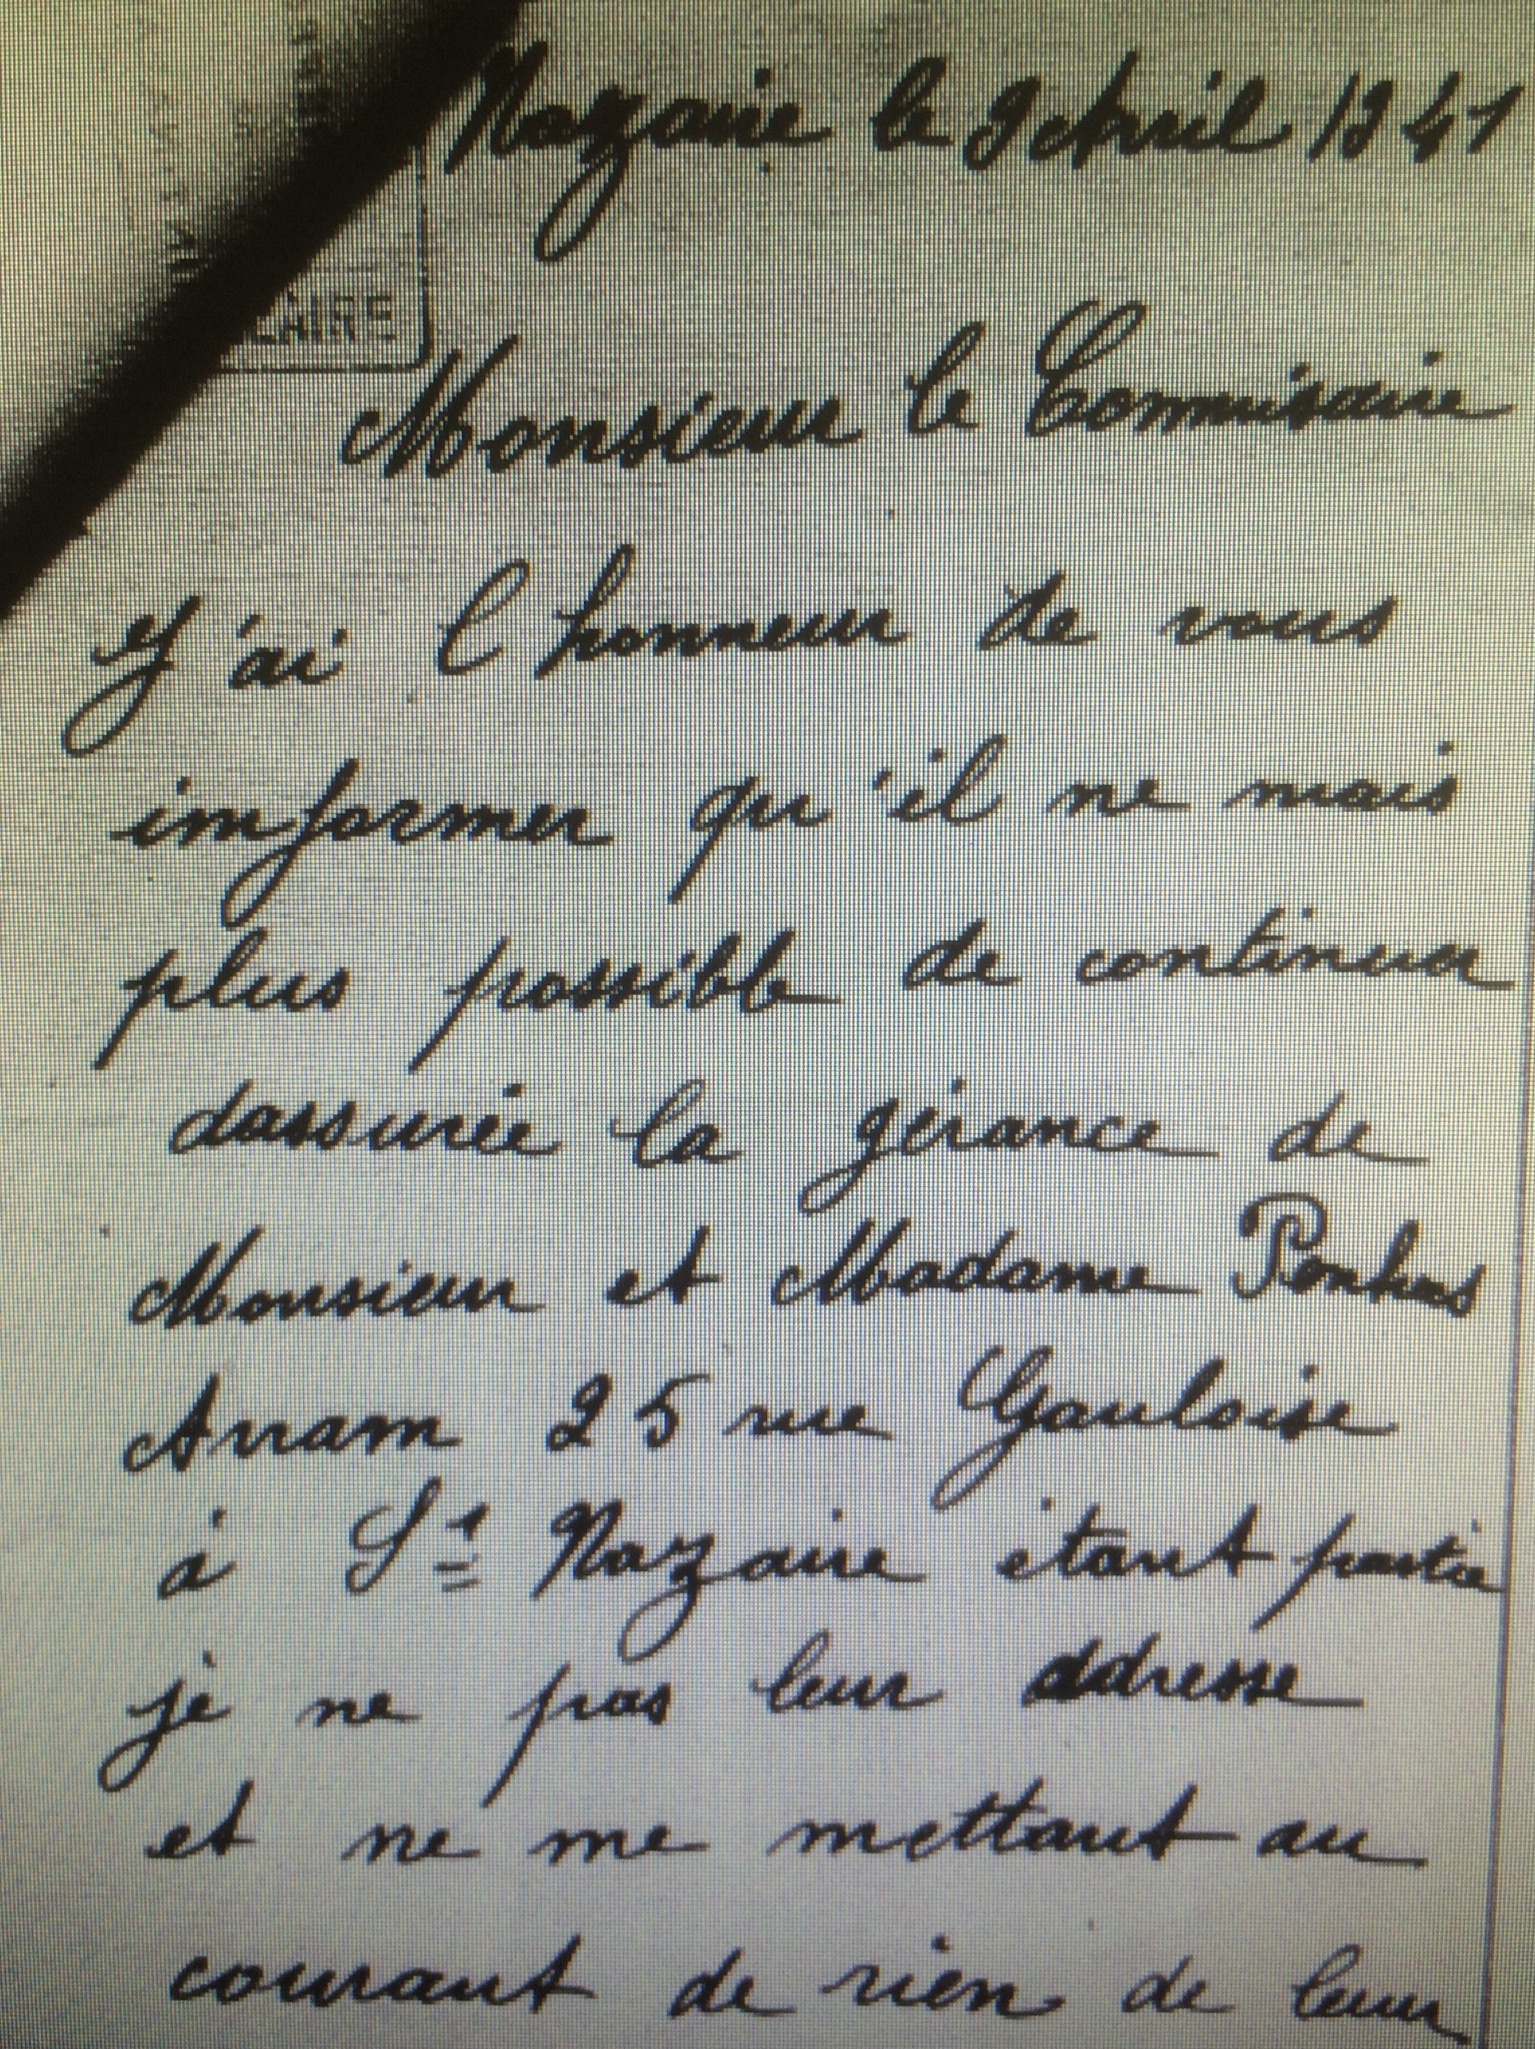 Nazaire le 9 Avril 1941
LAIRE
Monsieur le Commisaire
J'ai l'honneur de vous
informer qu'il ne mais
plus possible de continuer
dassurée la gérance de
Monsieur et Madame Pontus
Arram 25 rue Gauloise
à St Nazaire étant partie
je ne pas leur addresse
et ne me mettant au
courant de rien de leur